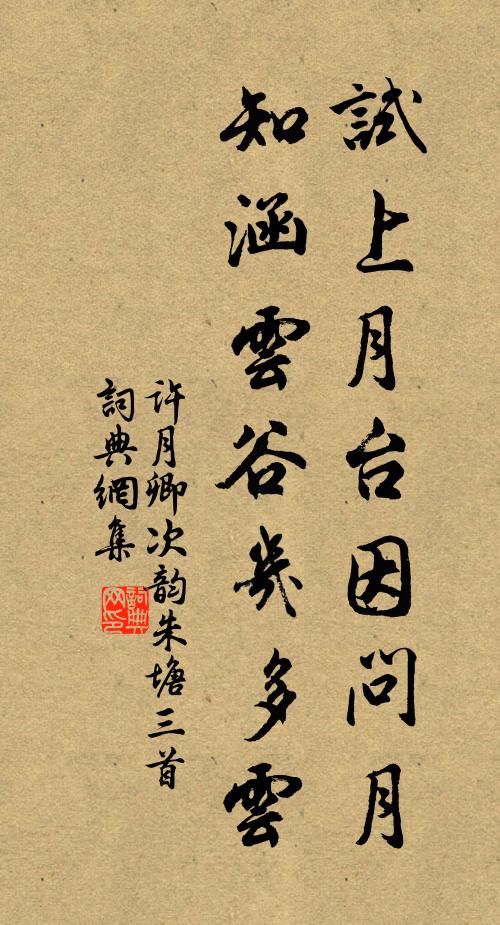 試上月台因問月
知涵雲谷幾多雲
許月卿次韵朱塘三首
詞典網集
詞典网印